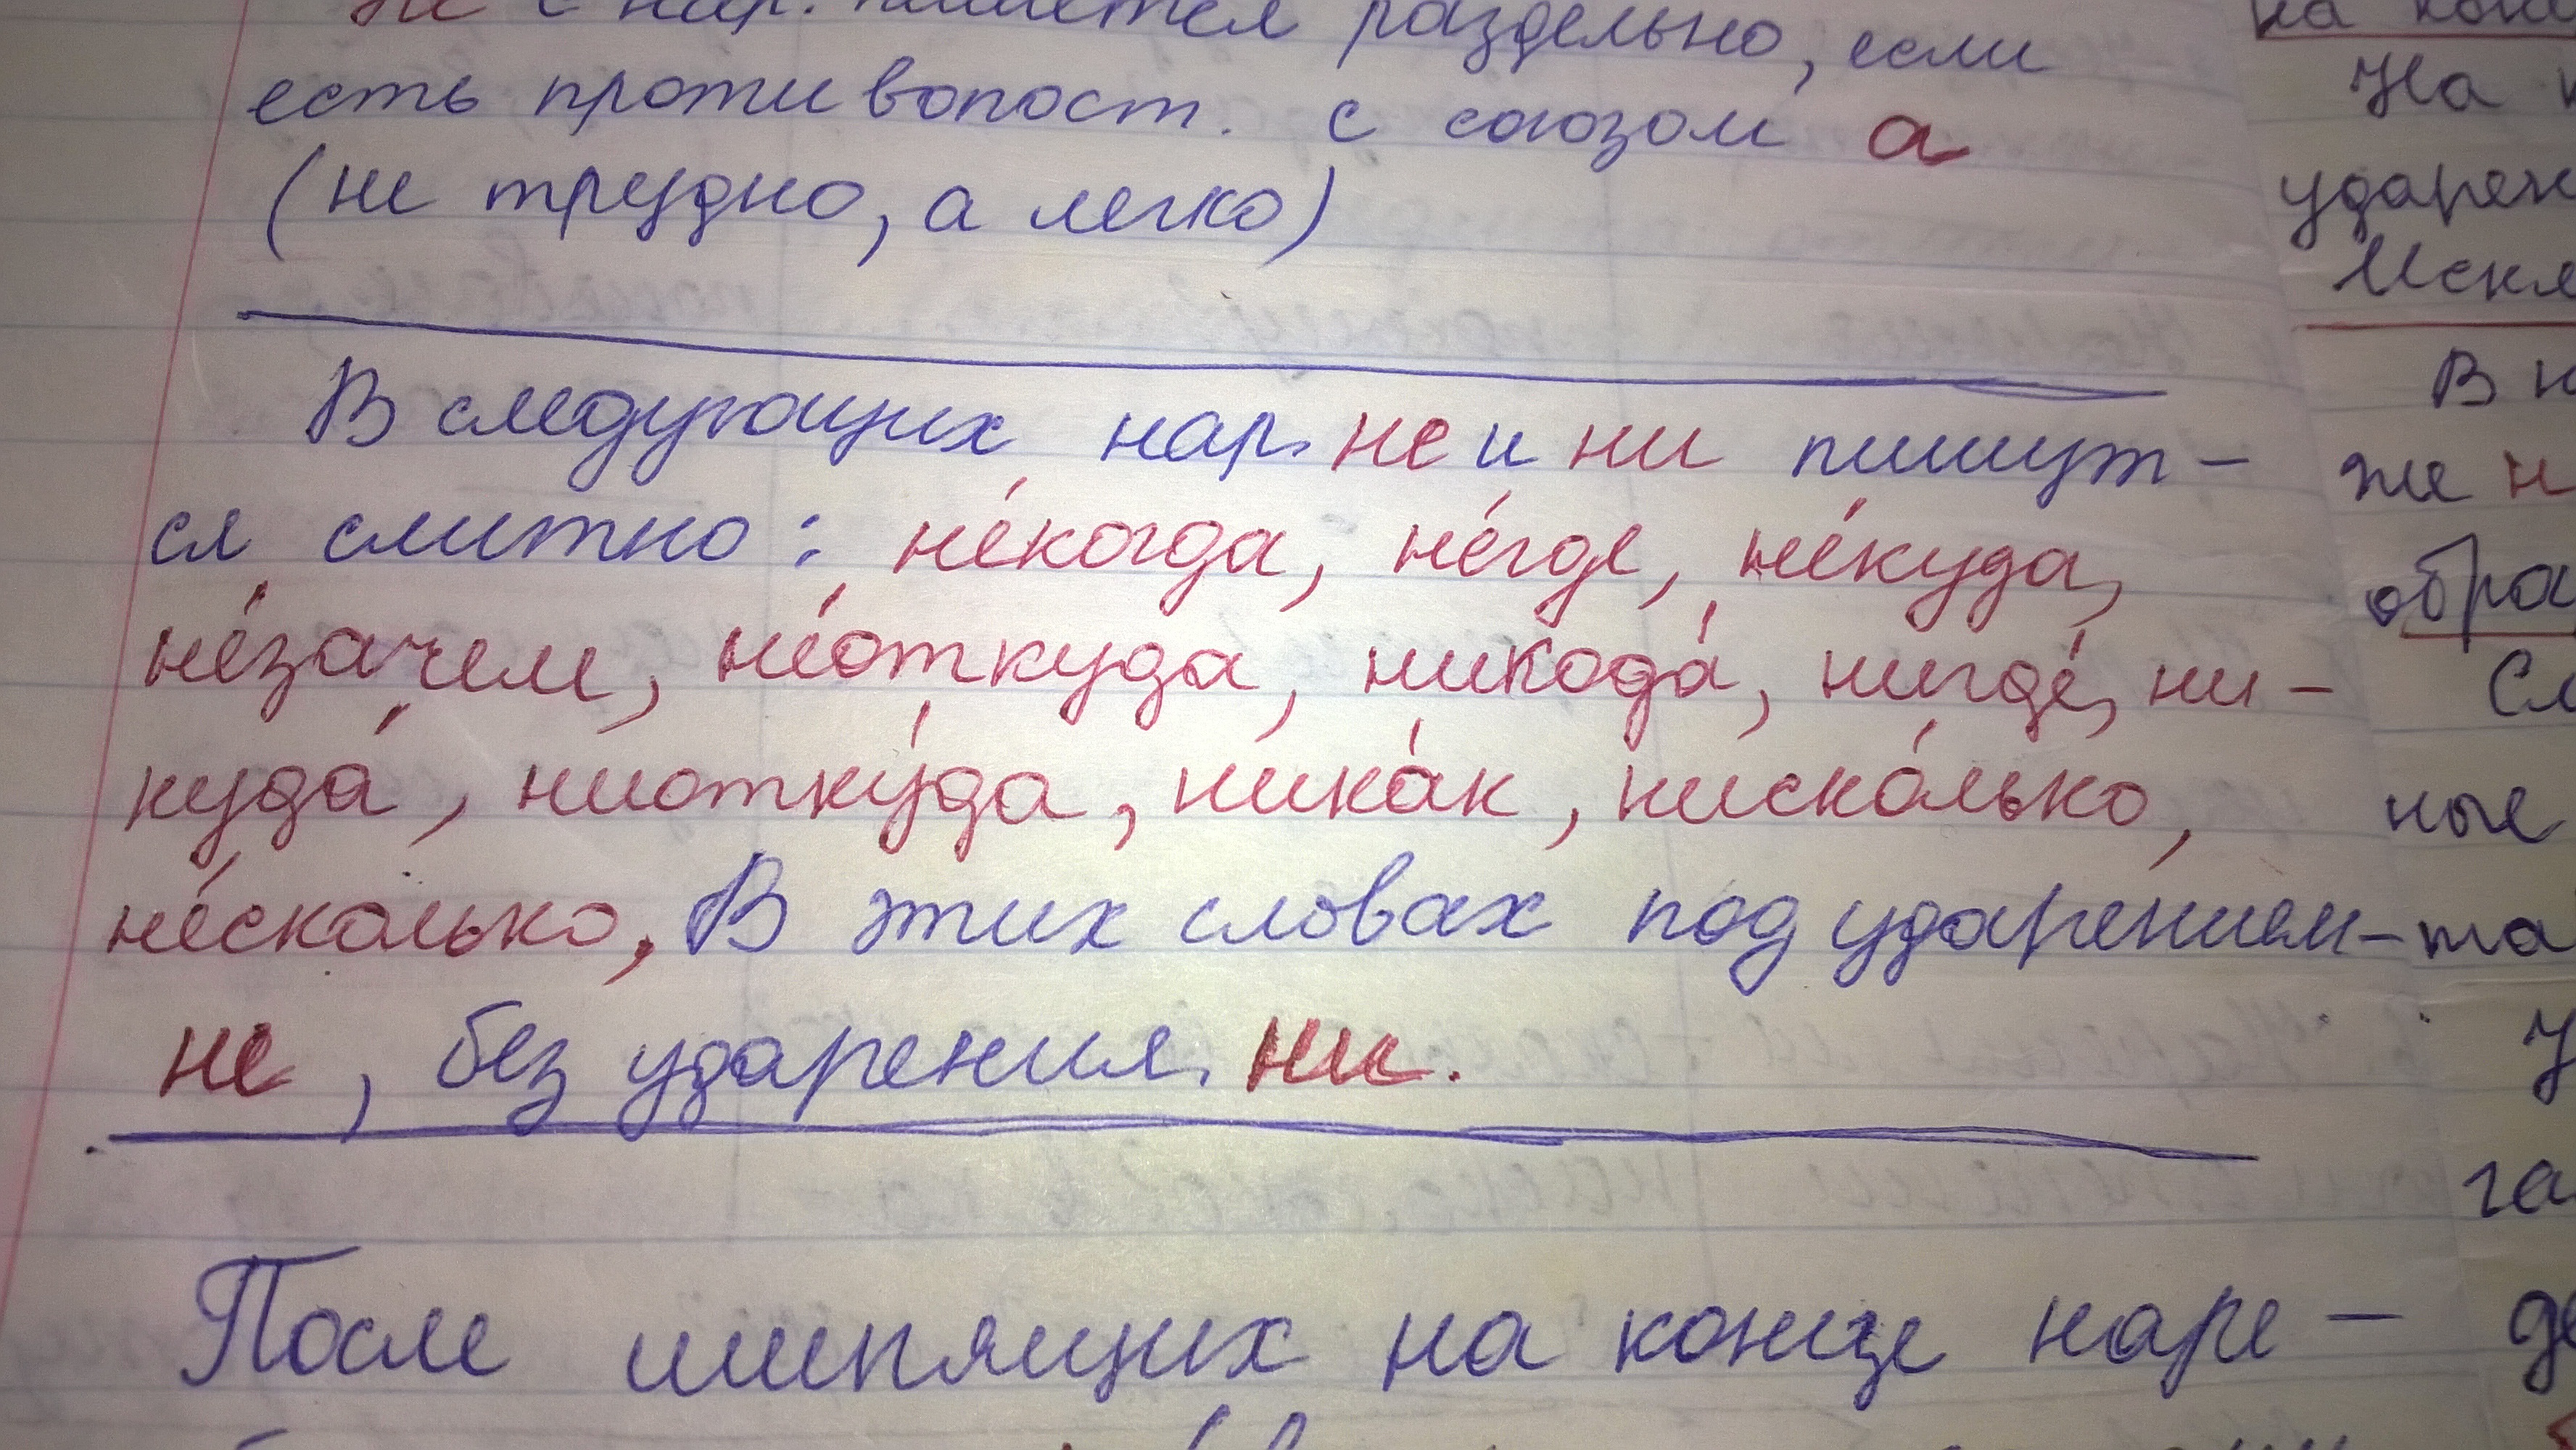 Не с нар. пишется раздельно, если
есть противопост. с союзом а
(не трудно, а легко)
В следующих нар. не и ни пишут-
ся слитно: не́когда, не́где, не́куда,
не́зачем, не́откуда, никода́, нигде́, ни-
куда́, ниотку́да, ника́к, ниско́лько,
не́сколько, В этих словах под ударением-
не, без ударения ни.
После шипящих на конце наре-
на
На
ударен
Искл
В н
же н
обра
Сл
ные
та
У
га